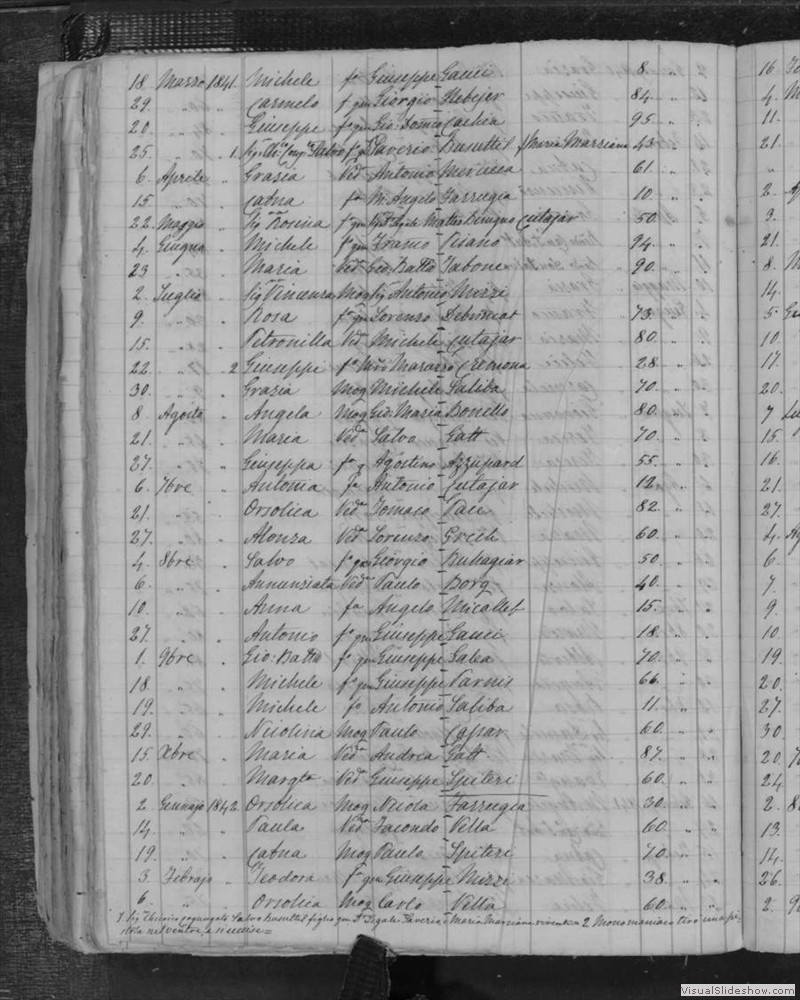 18 Marzo 1841. Michele fo Giuseppe Gauci 8. " "
29. " " Carmelo fo qm Giorgio Hebejer 84. " "
20. " " Giuseppe fo qm Gio: Domco Cachia 95. " "
25. " 1. Saverio Busuttil f Maria Marziana 43. " "
6. Aprile " Grazia Veda Antonio 61. " "
15. " " Catna fa M. Angelo Farrugia 10. " "
22. Maggio " Siga Rosina Benigno Cutajar 50. " "
4. Giugno " Michele fo qm Pisano 94. " "
23 " " Maria Veda Gio: Batta Tabone 90. " "
2. Luglio " Siga Vincenza Mog Sig Antonio Mizzi
9. " " Rosa fa qm Lorenzo 73. " "
15. " " Petronilla Veda Michele Cutajar 80. " "
22. " 2 Giuseppe fo Cremona 28. " "
30. " " Grazia Mog Michele Saliba 70. " "
8. Agosto " Angela Mog Gio: Maria Bonello 80. " "
21. " " Maria Veda Salvo Gatt 70. " "
27. " " Giuseppa fa q Agostino Azzupard 55. " "
6. 7bre " Antonia fa Antonio Cutajar 12. " "
21. " " Orsolica Veda Tomaso Pace 82. " "
27. " " Alonza Veda Lorenzo Grech 60. " "
4. 8bre " Salvo fo qm Giorgio Buhagiar 50. " "
6. " " Annunziata Veda Paulo Borg 40. " "
10. " " Anna fa Angelo Micallef 15. " "
27. " " Antonio fo qm Giuseppe Gauci 18. " "
1. 9bre " Gio: Batta fo qm Giuseppe Galea 70. " "
18. " " Michele fo qm Giuseppe Varnis 66 " "
19. " " Michele fo Antonio Saliba 11. " "
29. " " Nicolina Mog Paulo Caspar 60. " "
15. Xbre " Maria Veda Andrea Gatt 87. " "
20. " " Margta Veda Giuseppe Spiteri 60. " "
2. Gennajo 1842. Orsolica Mog Nicola Farrugia 30. " "
14. " " Paula Veda Facondo Vella 60. " "
19. " " Catna Mog Paulo Spiteri 70. " "
3. Febrajo " Teodora fa qm Giuseppe Mizzi 38. " "
6. " " Orsolica Mog Carlo Vella 60. " "
Salvo Busuttil figlio qm Saverio e Maria Marziana vivente = 2 Monomaniaco tirò una pi-
stola nel ventre, e si uccise =
16
4.
11.
21.
"
2.
3.
21.
8.
14.
5
10.
17.
20.
7
15.
16.
21.
27.
4.
6.
7.
9.
10
19.
20.
27.
30
20.
24.
2.
13.
14.
26.
2.
VisualSlideshow.com